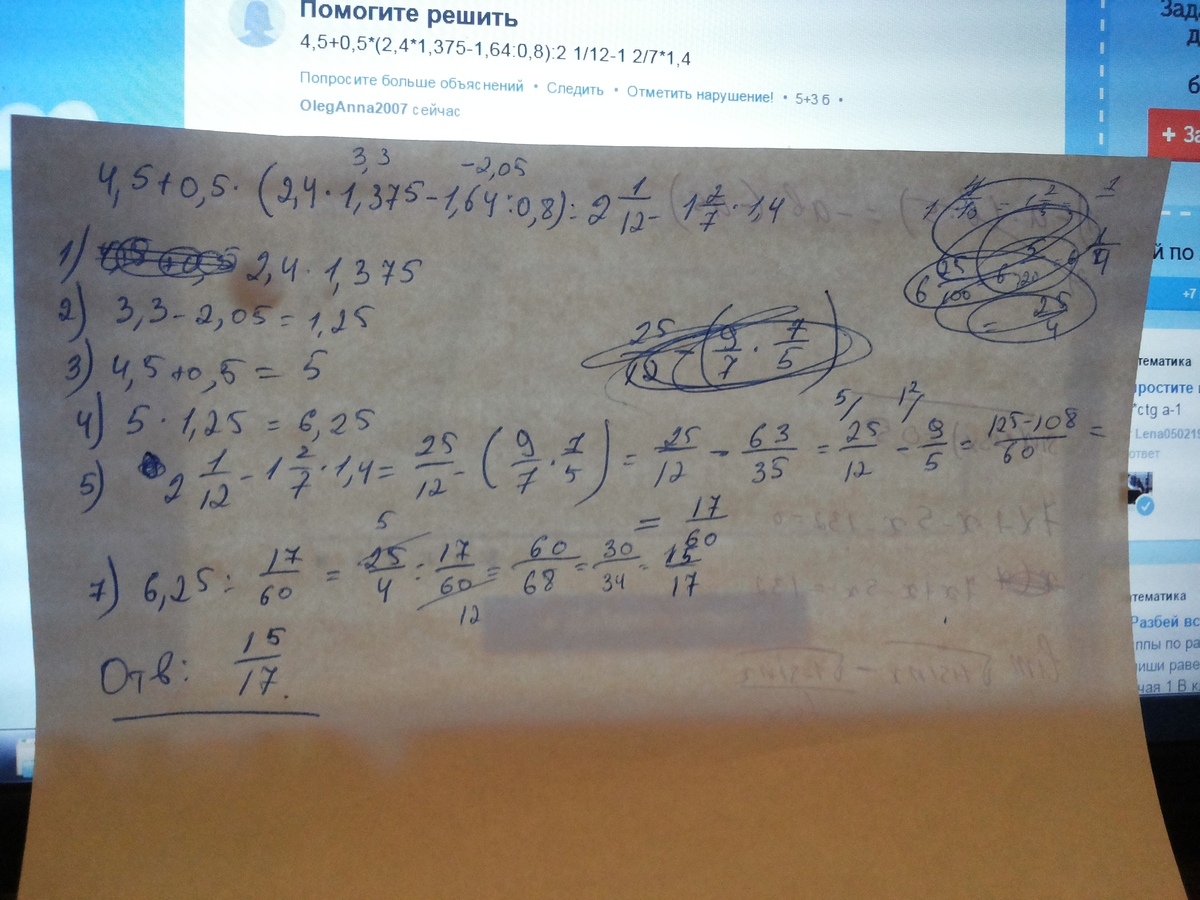 Помогите решить
4,5+0,5*(2,4*1,375-1,64:0,8):2 1/12-1 2/7*1,4
Попросите больше объяснений • Следить • Отметить нарушение! • 5+3 б •
OlegAnna2007 сейчас
Зад
+ За
й по
+7
тематика
*ctg a-1
Lena05021
ответ
тематика
Разбей вс
ппы по ра
иши раве
чая 1 В к
3,3 -2,05
4,5+0,5·(2,4·1,375-1,64:0,8):2 1/12-1 2/7·1,4
1) 2,4·1,375
2) 3,3-2,05=1,25
3) 4,5+0,5=5
4) 5·1,25=6,25
5) 2 1/12-1 2/7·1,4=25/12-(9/7·7/5)=25/12-63/35=25/12-9/5=125-108/60=
=17/60
7) 6,25:17/60=25/4:17/60=60/68=30/34=15/17
Отв: 15/17.